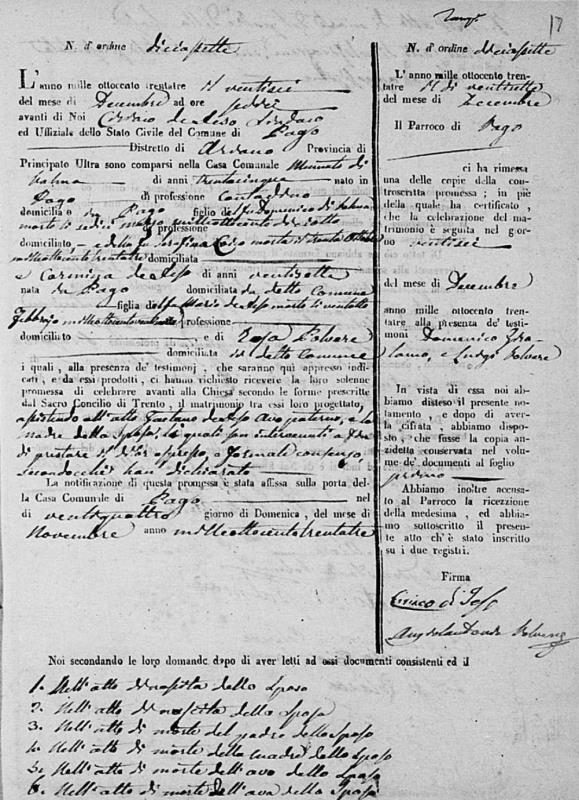 17
N. d'ordine diciasette
L'anno mille ottocento trentatre il ventisei
del mese di Decembre ad ore sedici
avanti di Noi Sindaco
ed Uffiziale dello Stato Civile del Comune di Pago
Distretto di Provincia di
Principato Ultra sono comparsi nella Casa Comunale Nunziato di
Palma di anni trentacinque nato in
Pago di professione contadino
domiciliato in Pago figlio del fu Domenico di Palma
morto li sedici mille ottocento professione
domiciliato, e della fu Serafina morta il trenta Ottobre
milleottocentotrentatre domiciliata
e Carmina de di anni ventisette
nata in Pago domiciliata in detto Comune
figlia del fu morto li ventotto
Febbrajo professione
domiciliato e di Rosa Polvere
domiciliata in detto Comune
i quali, alla presenza de' testimonj, che saranno qui appresso indi-
cati, e da essi prodotti, ci hanno richiesto ricevere la loro solenne
promessa di celebrare avanti alla Chiesa secondo le forme prescritte
dal Sacro Concilio di Trento, il matrimonio tra essi loro progettato,
assistendo all'atto Gaetano avo paterno, e la
madre della sposa, le quali son intervenuti
di prestare il di loro espresso, e formale consenso,
secondocché han dichiarato
La notificazione di questa promessa è stata affissa sulla porta del-
la Casa Comunale di Pago nel
di ventiquattro giorno di Domenica, del mese di
Novembre anno milleottocentotrentatre
N. d'ordine diciasette
L'anno mille ottocento tren-
tatre il di ventisette
del mese di Decembre
Il Parroco di Pago
ci ha rimessa
una delle copie della con-
troscritta promessa; in piè
della quale ha certificato,
che la celebrazione del ma-
trimonio è seguita nel gior-
no ventisei
del mese di Decembre
anno mille ottocento tren-
tatre alla presenza de' testi-
moni Domenico
e Luigi Polvere
In vista di essa noi ab-
biamo disteso il presente no-
tamento, e dopo di aver-
la cifrata, abbiamo dispo-
sto, che fosse la copia an-
zidetta conservata nel volu-
me de' documenti al foglio
primo
Abbiamo inoltre accusa-
to al Parroco la ricezione
della medesima, ed abbia-
mo sottoscritto il presen-
te atto ch'è stato inscritto
su i due registri.
Firma
Polvere
Noi secondando le loro domande dopo di aver letti ad essi documenti consistenti ed il
1. Nell'atto di nascita dello Sposo
2. Nell'atto di nascita della Sposa
3. Nell'atto di morte del padre dello Sposo
4. Nell'atto di morte della madre dello Sposo
5. Nell'atto di morte dell'avo dello Sposo
6. Nell'atto di morte dell'ava dello Sposo